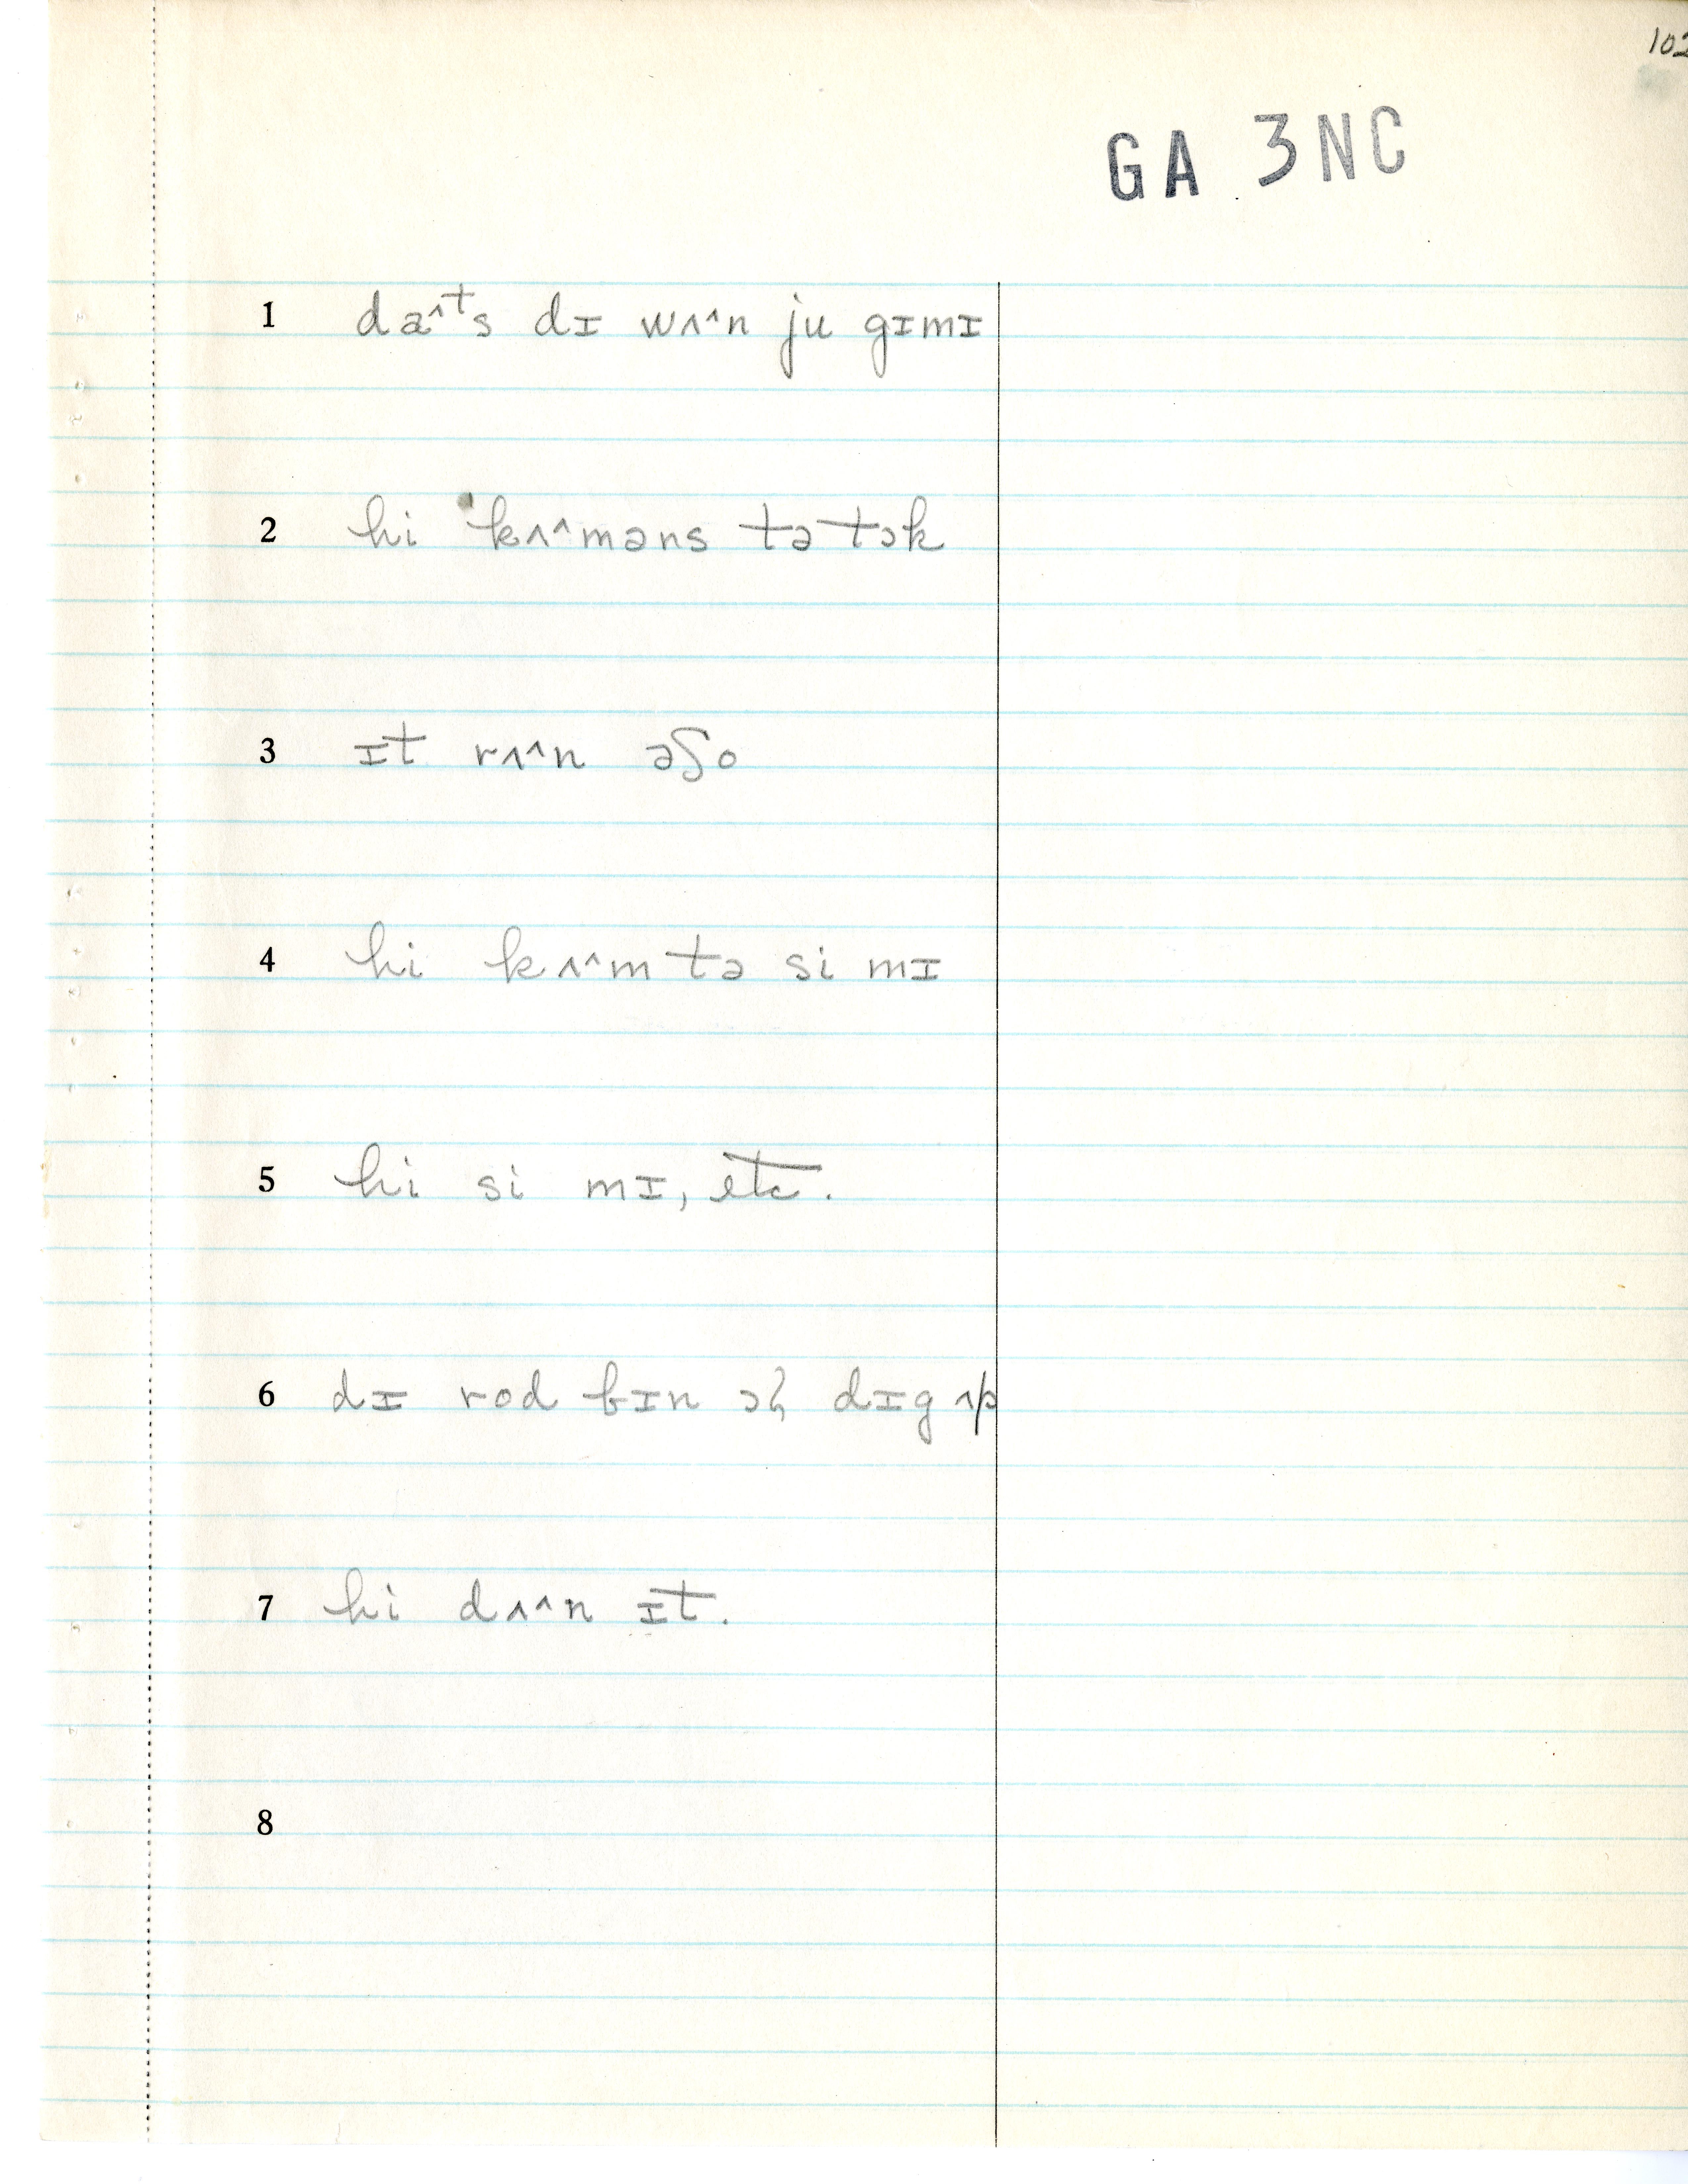 102
GA 3NC
1 da^ᵗs dɪ wʌ^n ju gɪmɪ
2 hi kʌ^məns tə tɔk
3 ɪt rʌ^n əʃo
4 hi kʌ^m tə si mɪ
5 hi si mɪ, etc.
6 dɪ rod bɪn dɪg ʌp
7 hi dʌ^n ɪt.
8